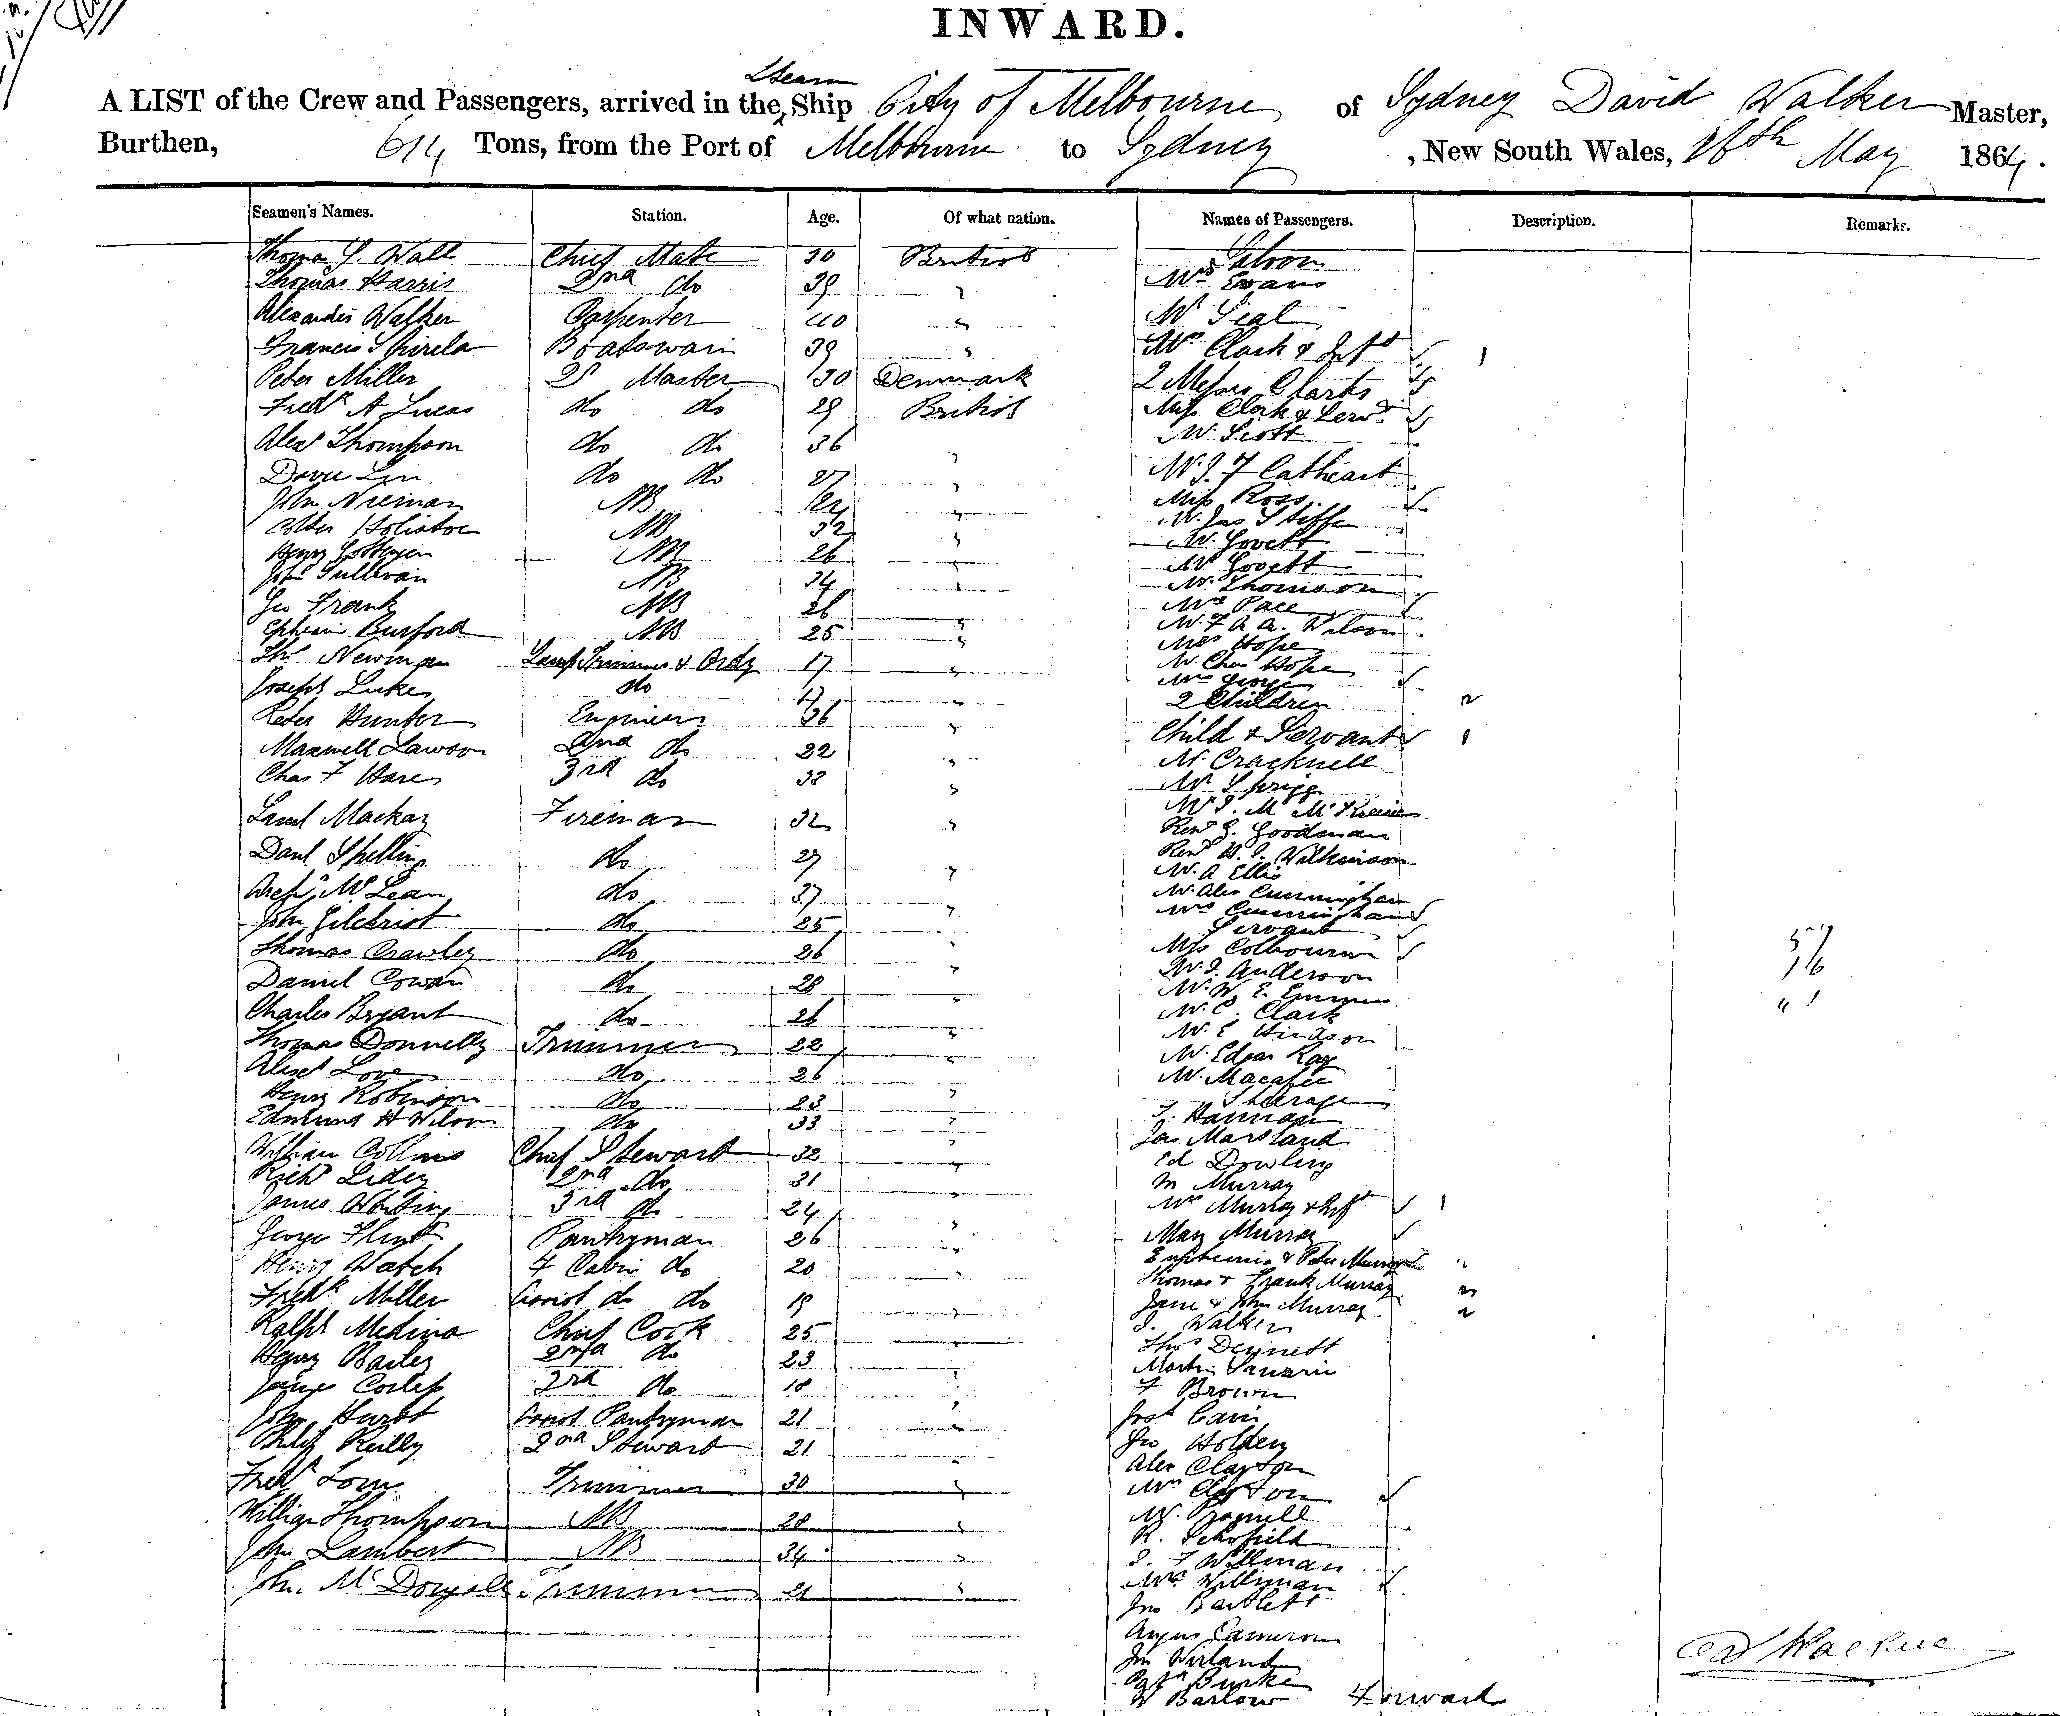 INWARD.
A LIST of the Crew and Passengers, arrived in the Steam Ship City of Melbourne of Sydney David Walker Master,
Burthen, 614 Tons, from the Port of Melbourne to Sydney, New South Wales, 16th May 1864.
Seamen's Names. Station. Age. Of what nation. Names of Passengers. Description. Remarks.
Thomas Wall Chief Mate 30 British Saloon
Thomas Harris 2nd do 39 " Mrs Evans
Walker Carpenter 40 " Mr Seal
Francis 39 " Mrs Clark & Inft 1
Peter Miller Master 30 Denmark 2 Messrs Clarks
Fredk A Lucas do do 29 British Miss Clark & Servt
Alexr Thompson do do 36 " Mr Scott
do do 27 " Mr J. F Cathcart
John AB " Miss Ross
AB 32 " Mr Jas
Henry AB 26 " Mr Lovett
John Sullivan AB 34 " Mr Lovett
Geo Frank AB 26 " Mr Thomson
Ephraim Burford AB 25 " Mrs Pace
Thos Newman Lamp Trimmer & Ordy 17 " Mr F. A. A. Wilson
Joseph Lukes do 17 " Mrs Hope
Peter Hunter Engineer 36 " Mr Chas Hope
Maxwell Lawson 2nd do 32 " Mrs George
Chas F Hare 3rd do 32 " 2 Children 2
Saml Mackay Fireman 32 " Child & Servant 1
Danl do 27 " Mr Cracknell
Archd McLean do 37 " Mr Sprigg
John Gilchrist do 25 " Mr J. M
Thomas Crawley do 26 " Revd G. Goodman
Daniel Cowan do 28 " Revd Wilkinson
Charles Bryant do 26 " Mr A Ellis
Thomas Donnelly Trimmer 22 " Mr Alex Cunningham
Alexr Love do 26 " Mrs Cunningham
Henry Robinson do 23 " Servant
Edmund H Wilson do 33 " Miss Colbourn
William Collins Chief Steward 32 " Mr J. Anderson
Richd Lidey 2nd do 31 " Mr W. E.
James Whiting 3rd do 24 " Mr C. Clark
George Flint Pantryman 26 " Mr E Hindson
Henry Watch F Cabin do 20 " Mr Edgar Ray
Fredk Miller do do 19 " Mr Macafee
Ralph Medina Chief Cook 25 " Steerage
Henry Bailey 2nd do 23 " Hannah
James 3rd do 18 " Jas Marsland
John Hurst Pantryman 21 " Ed Dowling
Philip Reilly 2nd Steward 21 " M Murray
Fredk Trimmer 30 " Mrs Murray & Inft 1
William Thompson AB 28 " Mary Murray
John Lambert AB 34 " Euphemia & Peter Murray
John McDougall Trimmer 21 " Thomas & Frank Murray 2
Jane & John Murray 2
J. Walker
Thos Dennett
Martin
F Brown
Josh
Jno Holden
Alex Clayton
Mrs Clayton
R. Schofield
J. F Williman
Mrs Williman
Jno Bartlett
Angus Cameron
Jno
Burke
W Barlow Forward